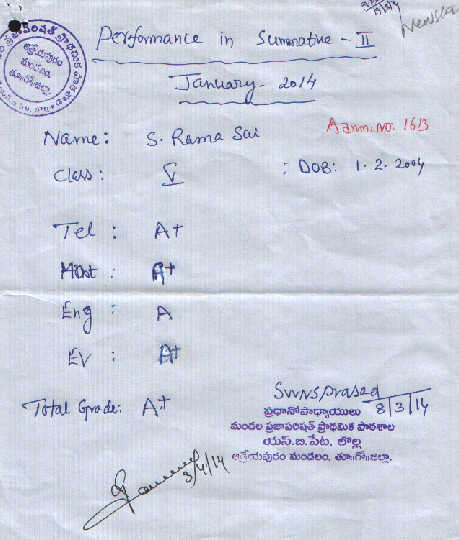 Performance in Summative - II
January - 2014
Name: S. Rama Sai
Admn: no. 1613
Class: V : DOB: 1-2-2004
Tel : A+
Mat : A+
Eng : A
EV : A+
Total Grade: A+
8/3/14
ప్రధానోపాధ్యాయులు
మండల ప్రజాపరిషత్ ప్రాథమిక పాఠశాల
యస్.బి.పేట, లొల్ల
ఆత్రేయపురం మండలం, తూ.గో.జిల్లా.
3/4/14